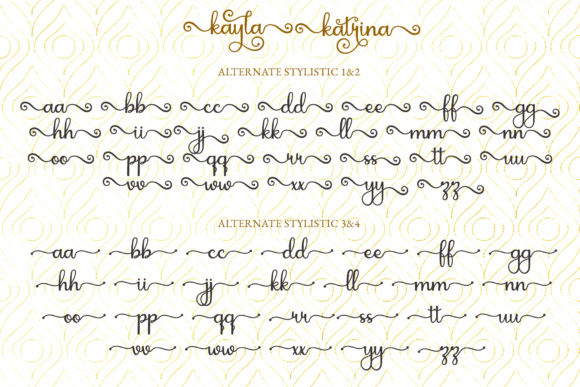 kayla katrina
ALTERNATE STYLISTIC 1&2
aa bb cc dd ee ff gg
hh ii jj kk ll mm nn
oo pp qq rr ss tt uu
vv ww xx yy zz
ALTERNATE STYLISTIC 3&4
aa bb cc dd ee ff gg
hh ii jj kk ll mm nn
oo pp qq rr ss tt uu
vv ww xx yy zz